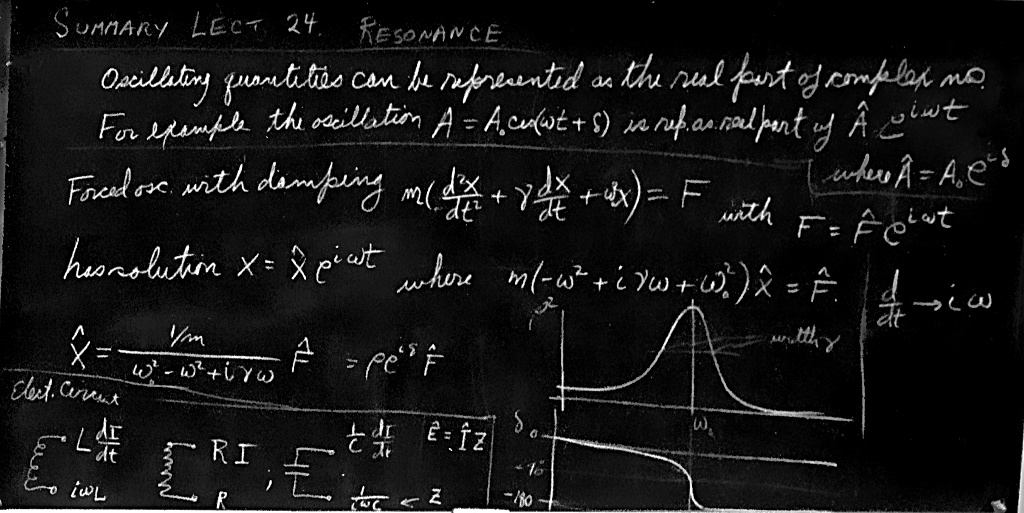 SUMMARY LECT 24. RESONANCE
Oscillating quantities can be represented as the real part of complex no.
For example the oscillation A = A₀cos(ωt + δ) is rep. as real part of Â e^{iωt}
[where Â = A₀e^{iδ}
Forced osc. with damping m(d²x/dt² + γ dx/dt + ω₀²x) = F with F = F̂ e^{iωt}
has solution x = x̂ e^{iωt} where m(-ω² + iγω + ω₀²) x̂ = F̂. | d/dt → iω
x̂ = 1/m / (ω₀² - ω² + iγω) F̂ = ρe^{iδ} F̂
ρ²
width γ
ω₀
Elect. Circuit
L dI/dt RI ; 1/C dI/dt Ê = Î Z
iωL R 1/iωC ← Z
δ 0
-90
-180